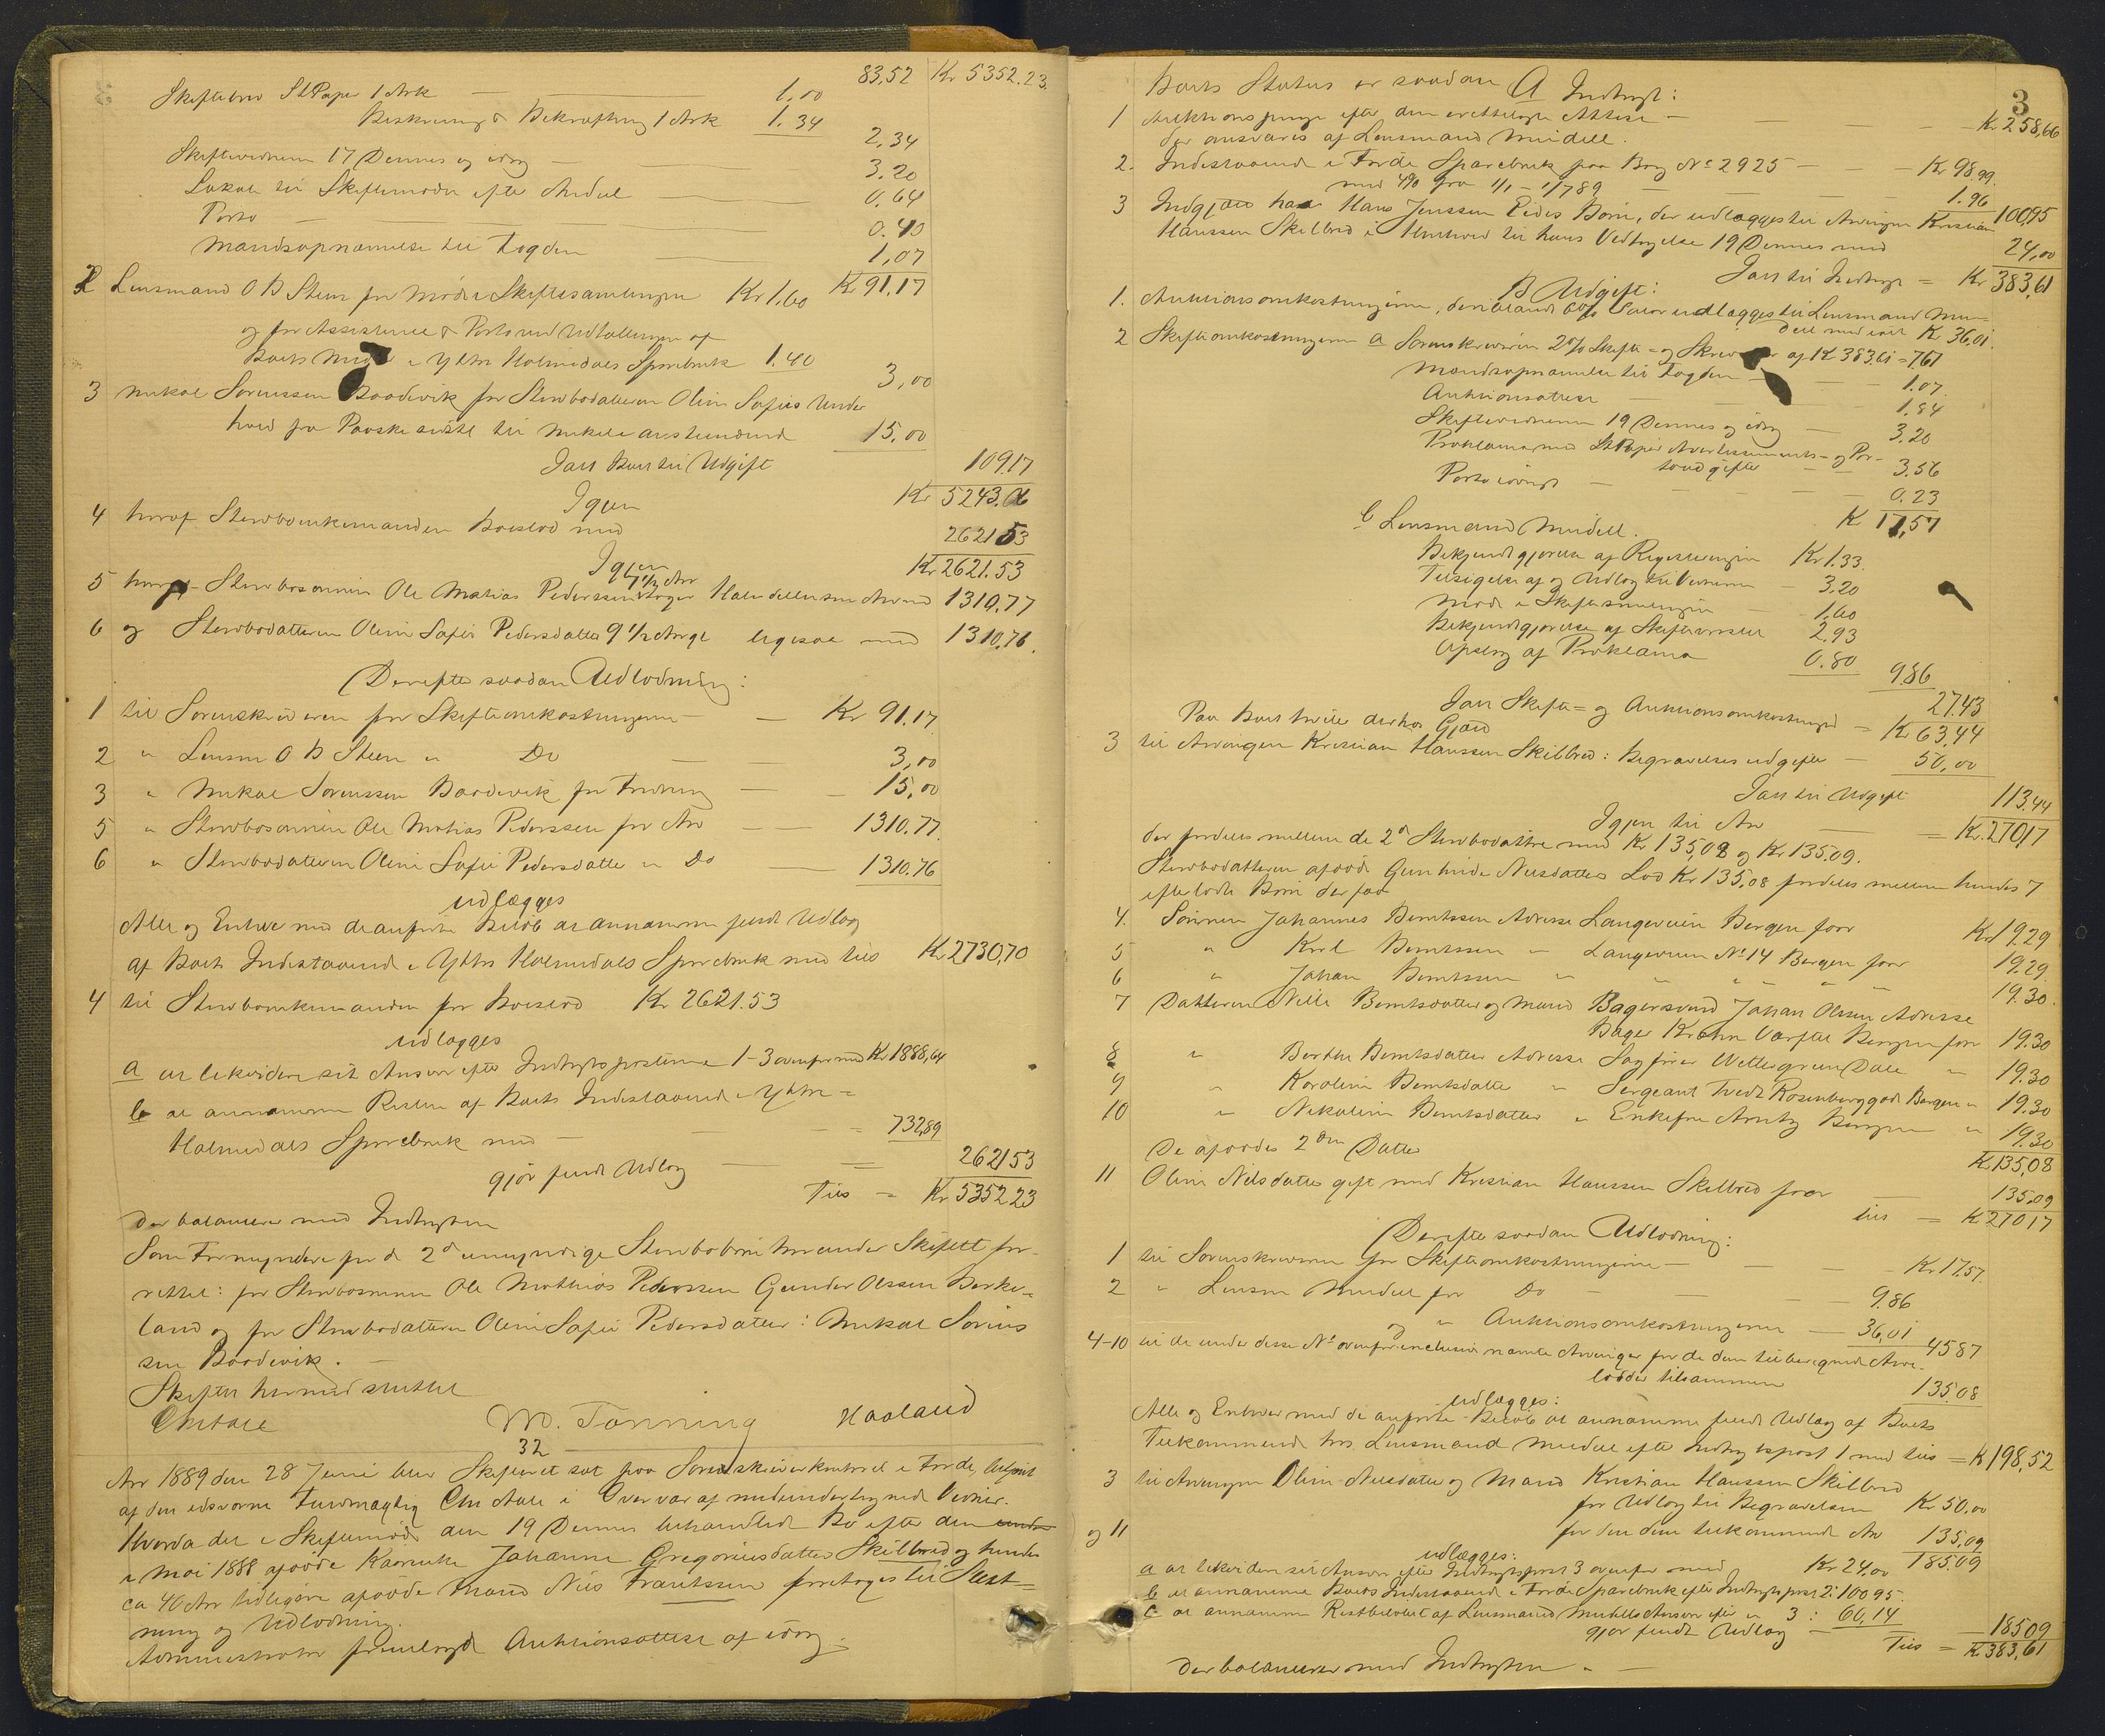 83,52 Kr 5352.23.
Skiftebrev StPapir 1 Ark — 1,00
Beskrivning & Bekræftning 1 Ark 1.34
2,34
Skiftevidnerne 17 Dennes og idag — 3.20
Lokale til Skiftemøder efter Andel — 0,64
Porto — 0.40
Mandsopnævnelse til Fogden — 1,07
Kr 91,17
2 Lensmand O B Steen for Møde i Skiftesamlingen Kr 1.60
og for Assistence & Porto ved Udtallingen af
Boets Midler i Ytre Holmedals Sparebank 1.40
3,00
3 Mikal Sørenssen Baardevik for Stervbodatteren Oline Sofies Under
hold fra Paaske sidstl til Mikali anstundende 15,00
Jalt Boets Udgift 109,17
Igjen Kr 5243.06
4 hvoraf Stervboenkemanden Boeslod med 2621 53
Igjen Kr 2621.53
5 hvoraf Stervbosønnen Ole Matias Pederssen 7 1/2 Aar tager Halvdelen som Arv med 1310,77
6 og Stervbodatteren Oline Sofie Pedersdatter 9 1/2 Aar gl ligesaa med 1310,76.
Derefter saadan Udlodning:
1 til Sorenskriveren for Skifteomkostningerne — Kr 91.17
2 " Lensm O B Steen " Do — 3,00
3 " Mikal Sørenssen Baardevik for Fordring — 15,00
5 " Stervbosønnen Ole Matias Pederssen for Arv — 1310.77.
6 " Stervbodatteren Oline Sofie Pedersdatter " Do — 1310.76
udlægges
Alle og Enhver med de anførte Beløb at annamme fuldt Udlæg
af Boets Indestaaende i Ytre Holmedals Sparebank med tils Kr 2730,70
4 til Stervboenkemanden for Boeslod Kr 2621.53
udlægges
a at likvidere sit Ansvar efter Indtægtsposterne 1-3 ovenfor med Kr 1888,64
b at annamme Resten af Boets Indestaaende i Ytre =
Holmedals Sparebank med — 732,89
gjør fuldt Udlæg — 2621 53
Tils = Kr 5352 23
der balancerer med Indtægten
Som Formyndere for de 2de umyndige Stervbobørn har under Skiftet for-
rettet: for Stervbosønnen Ole Mathias Pederssen Gunder Olssen Birke-
land og for Stervbodatteren Oline Sofie Pedersdatter: Mikal Søriens
sen Baardevik. —
Skiftet hermed sluttet
Chr Aall M. Tonning Haaland
32
Aar 1889 den 28 Juni blev Skifteret sat paa Sorenskriverkontoret i Førde, betjent
af den edsvorne Fuldmægtig Chr Aall i Overvær af medundertegnede Vidner.
Hvorda det i Skiftemøde den 19 Dennes behandlede Bo efter den
i Mai 1888 afdøde Kaarenke Johanne Gregoriusdatter Skilbred og hendes
ca 40 Aar tidligere afdøde Mand Nils Frantssen foretoges til Slut=
ning og Udlodning.
Administrator fremlagde Auktionsattest af idag.
3
Boets Status er saadan A Indtægt:
1 Auktionspenge efter den irettelagte Attest — Kr 258,66
der ansvares af Lensmand Mindell.
2. Indestaaende i Førde Sparebank paa Bog No 2925 — Kr 98.99.
med 4% fra 1/1 - 1/7 89 — 1.96
100,95
3 Indgjæld hos Hans Jenssen Eides Børn, der udlægges til Arvingen Kristian
Hanssen Skilbred i Henhold til hans Vedtagelse 19 Dennes med 24,00
Jalt til Indtægt = Kr 383,61
B Udgift:
1. Auktionsomkostningerne, deriblandt 6% Salær udlægges til Lensmand Min-
dell med ialt Kr 36,01.
2 Skifteomkostningerne a Sorenskriveren 2% Skifte- og Skriv af Kr 383.61 = 7,67
Mandsopnævnelse til Fogden — 1.07
Auktionsattest — 1,84
Skiftevidnerne 19 Dennes og idag — 3.20
Proklama med StPapir Avertissements- og Por-
toudgifter 3,56
Porto iøvrigt — 0.23
K 17,57
b Lensmand Mindell.
Bekjendtgjørelse af Registreringen Kr 1.33.
Tilsigelse af og Udlæg til Vidnerne — 3.20
Møde i Skiftesamlingen — 1.60
Bekjendtgjørelse af Skiftevarsel 2.93
Opslag af Proklama 0.80
9.86
Jalt Skifte= og Auktionsomkostninger 27.43
= Kr 63,44
Paa Boet hviler derhos Gjæld
3 til Arvingen Kristian Hanssen Skilbred: Begravelsesudgifter — 50,00
Jalt til Udgift 113,44
Igjen til Arv — = Kr. 270,17
der fordeles mellem de 2de Stervbodøttre med Kr 135,08 og Kr 135.09.
Stervbodatteren afdøde Gunhilde Nilsdatters Lod Kr 135,08 fordeles mellem hendes 7
efterladte Børn der faar
4. Sønnen Johannes Berntssen Adresse Langeveien Bergen faar Kr 19.29
5 " Karl Berntssen — Langeveien No 14 Bergen faar 19.29
6 " Johan Berntssen " " " " 19.30.
7 Datteren Nille Berntsdatter og Mand Bagersvend Johan Olsen Adresse
Bager Krohn Værftet Bergen faar 19.30
8 " Berthe Berntsdatter Adresse Sagfører Wettergreen Dale " 19.30
9 " Karoline Berntsdatter " Sergeant Tvedt Rosenberggad Bergen " 19.30
10 " Nikoline Berntsdatter " Enkefru Arntz Bergen " 19.30
K 135,08
De afdødes 2den Datter
11 Oline Nilsdatter gift med Kristian Hanssen Skilbred faar — 135,09
tils = K 270 17
Derefter saadan Udlodning:
1 til Sorenskriveren for Skifteomkostningerne — Kr 17.57.
2 " Lensm Mindell for Do — 9.86
og " Auktionsomkostningerne — 36,01
45 87
4-10 til de under disse No ovenfor inclusive nævnte Arvinger for de dem tilberegnede Arve-
lodder tilsammen 135,08
udlægges:
Alle og Enhver med de anførte Beløb at annamme fuldt Udlæg af Boets
Tilkommende hos Lensmand Mindell efter Indtægtspost 1 med tils = K 198,52
3 til Arvingen Oline Nilsdatter og Mand Kristian Hanssen Skilbred
for Udlæg til Begravelsen Kr 50.00
og 11 for den dem tilkommende Arv 135,09
185.09
udlægges:
a at likvidere sit Ansvar efter Indtægtspost 3 ovenfor med Kr 24,00
b at annamme Boets Indestaaende i Førde Sparebank efter Indtægtspost 2: 100 95.
c at annamme Restbeløbet af Lensmand Mindells Ansvar efter " 3: 60,14
gjør fuldt Udlæg — 185 09
Tils = K 383,61
der balancerer med Indtægten. —